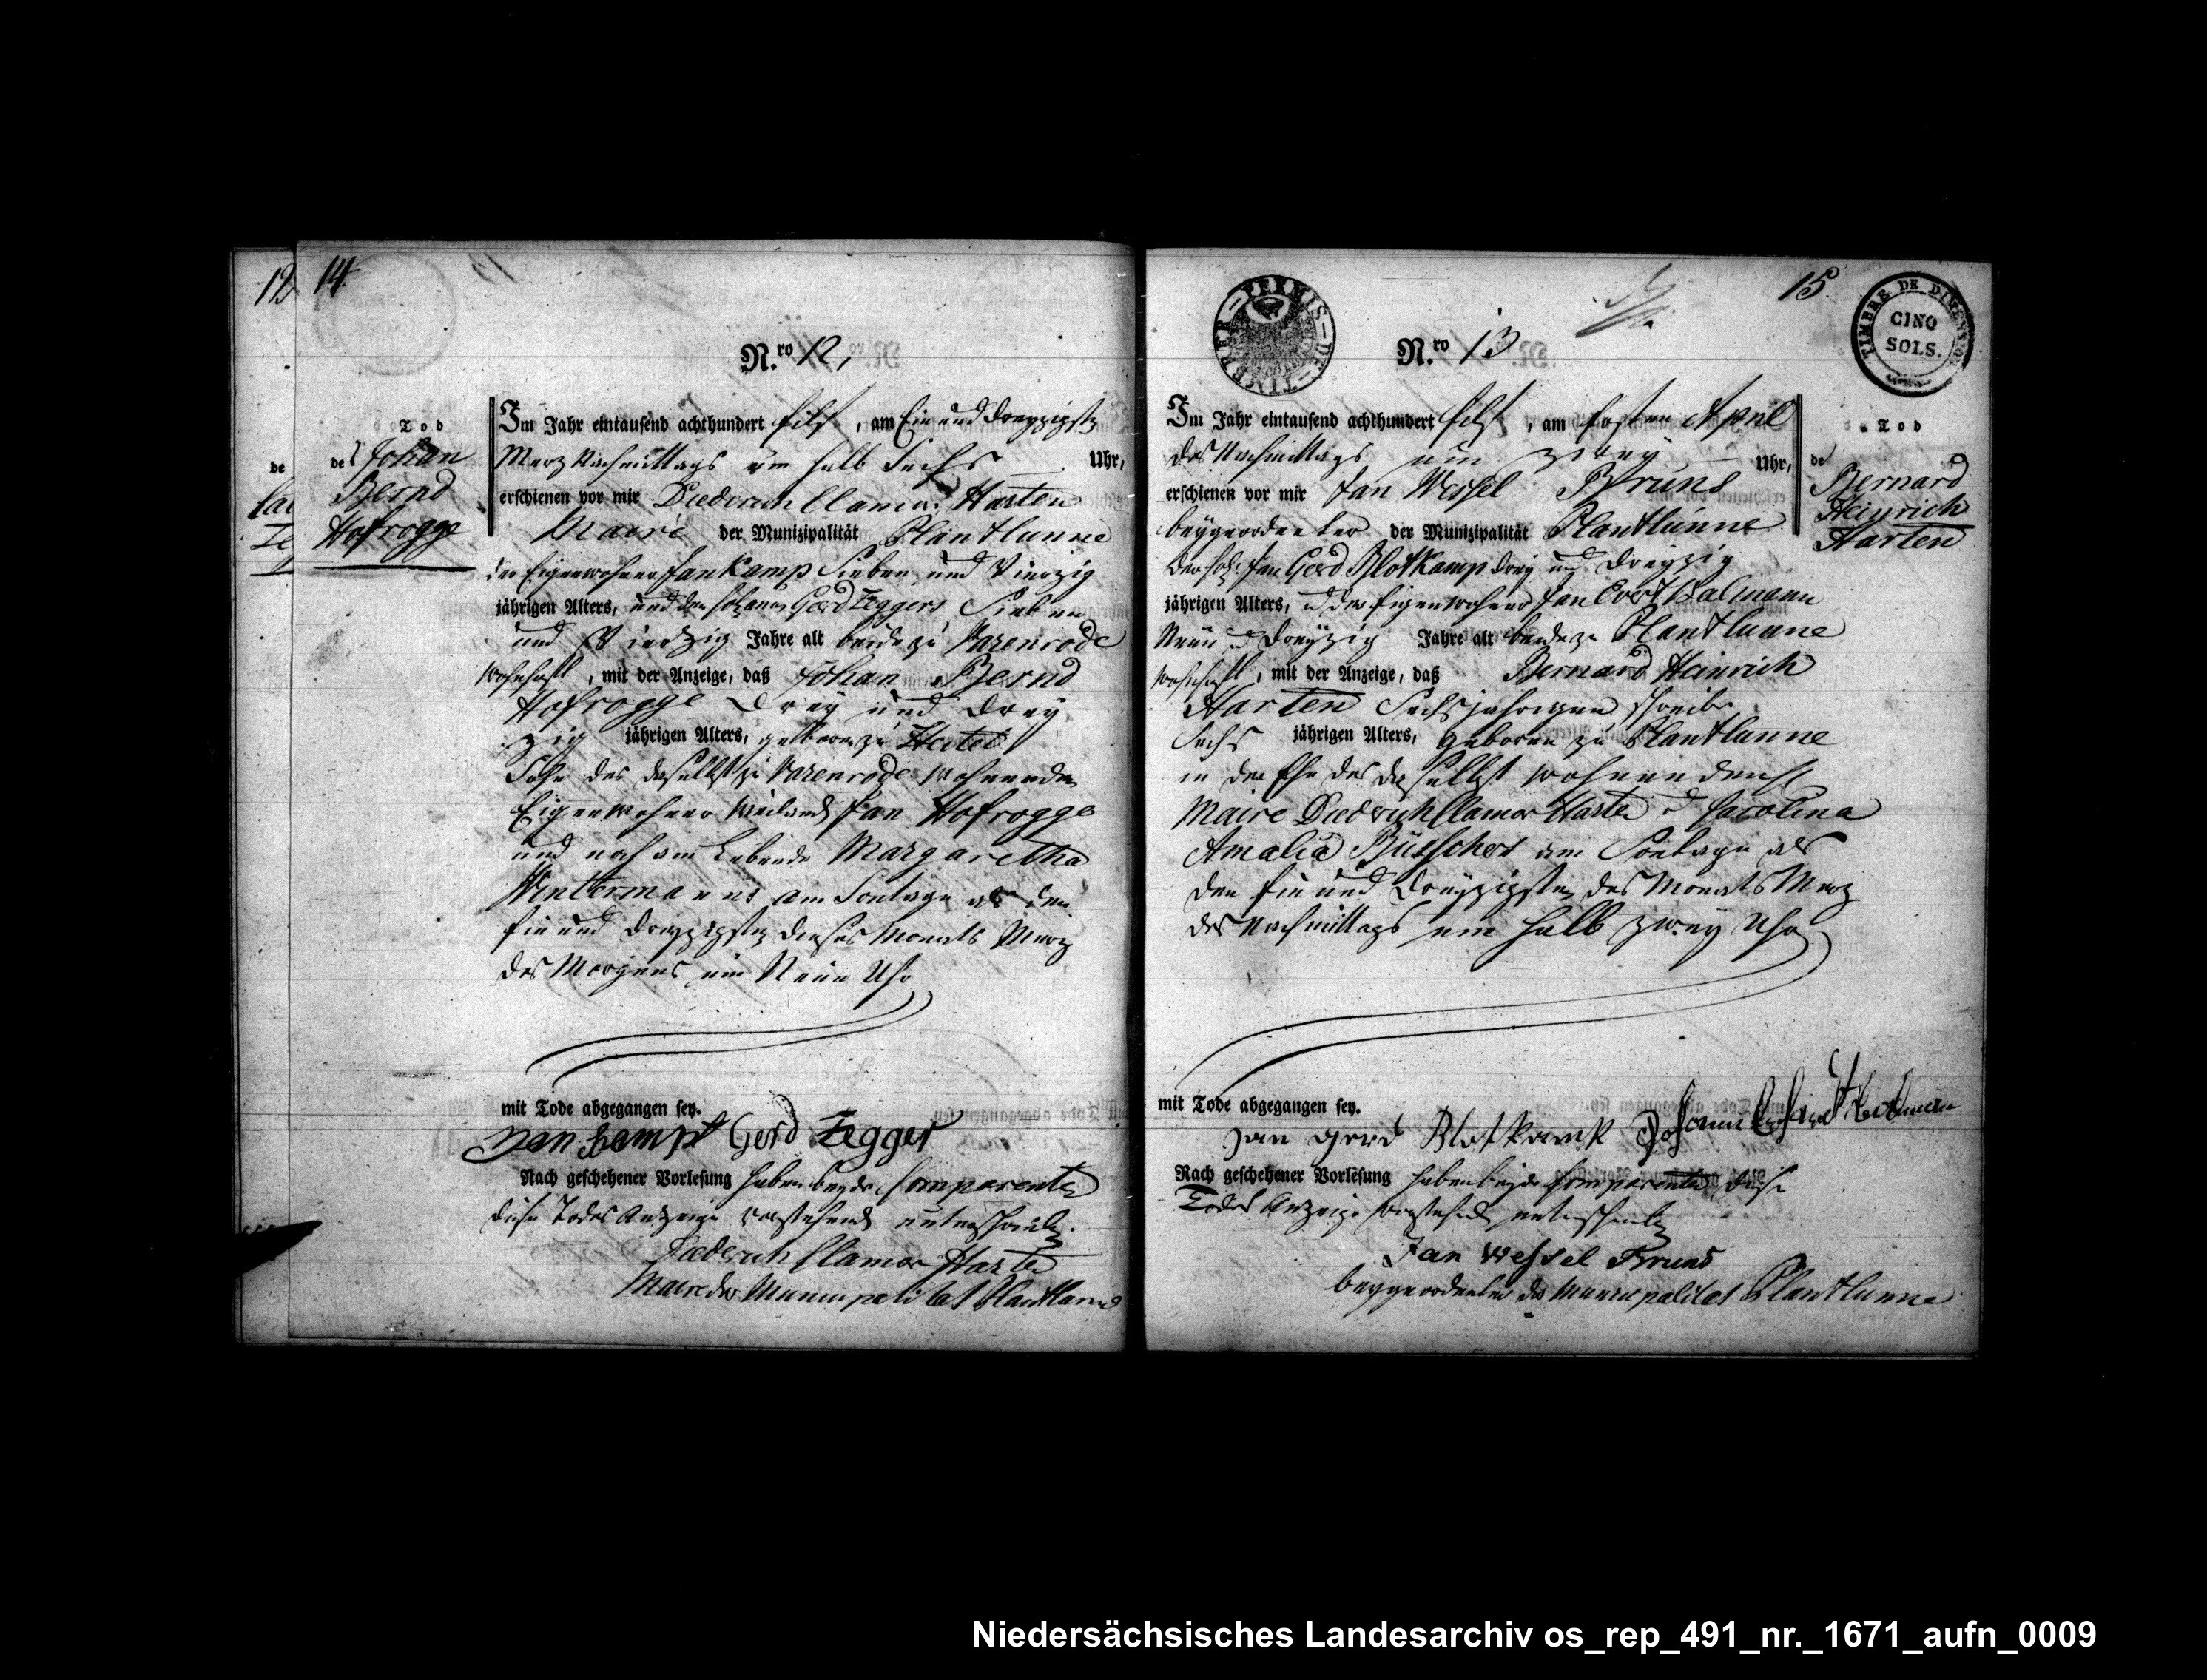 12
de
14
N.ro 12,
Tod
des Johan
Bernd
Hofrogge
Im Jahr eintausend achthundert Eilf, am Ein und dreyzigsten
Merz Nachmittags um halb Sechs Uhr,
erschienen vor mir Diederich Clamor Harten
Maire der Munizipalität Plantlunne
der Eigenwohner Jan Kamp Sieben und Vierzig
jährigen Alters, und der Gerd Zeggers Sieben
und Vierzig Jahre alt beide zu Varenrode
wohnhaft, mit der Anzeige, daß Johan Bernd
Hofrogge Drey und Drey
zig jährigen Alters, geboren zu
Sohn des daselbst zu Varenrode wohnenden
Eigenwohner weiland Jan Hofrogge
und noch am Lebende Margaretha
Wintermanns am Sontage als den
Ein und dreyzigsten dieses Monats Merz
des Morgens um Neun Uhr
mit Tode abgegangen sey.
Jan Kamp Gerd Zegger
Nach geschehener Vorlesung haben beyde Comparenten
diese Todes Anzeige vorstehend unterschrieben.
Diederich Clamor Harten
Maire der Municipalitat Plantlunne
15
PERMIS-DE-TIMBRER
TIMBRE DE DIMENSION
CINQ
SOLS.
N.ro 13
Tod
de
Bernard
Heinrich
Harten
Im Jahr eintausend achthundert Eilf, am Ersten April
des Nachmittags um zwey Uhr,
erschienen vor mir Jan Wessel Bruns
beygeordneter der Munizipalität Plantlunne
Jan Gerd Blotkamp drey und dreyzig
jährigen Alters, u der Eigenwohner Jan Evert
Neun u dreyzig Jahre alt beide zu Plantlunne
wohnhaft, mit der Anzeige, daß Bernard Heinrich
Harten Sechsjährigen schreibe
Sechs jährigen Alters, geboren zu Plantlunne
in der Ehe des daselbst wohnenden
Maire Diederich Clamor Harten u Carolina
Amalia Büsschers am Sontage als
den Ein und dreyzigsten des Monats Merz
des Nachmittags um halb zwey Uhr
mit Tode abgegangen sey.
Jan Gerd Blotkamp Johann
Nach geschehener Vorlesung haben beyde Comparenten diese
Todes Anzeige vorstehend unterschrieben
Jan Wessel Bruns
beygeordneter der Municipalitat Plantlunne
Niedersächsisches Landesarchiv os_rep_491_nr._1671_aufn_0009